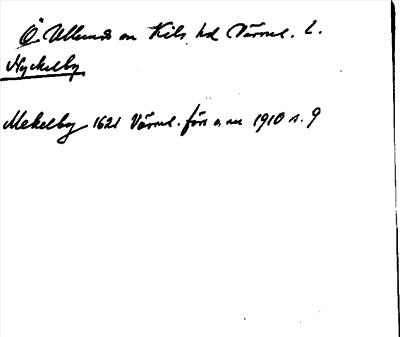 Ö. Ullerud sn Kils hd Värml. l.
Myckelby
Mekelby 1621 Värml. förr o. nu 1910 s. 9